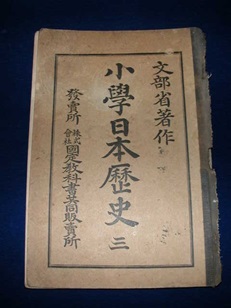 文部省著作
小學日本歷史 三
發賣所 株式會社 國定敎科書共同販賣所